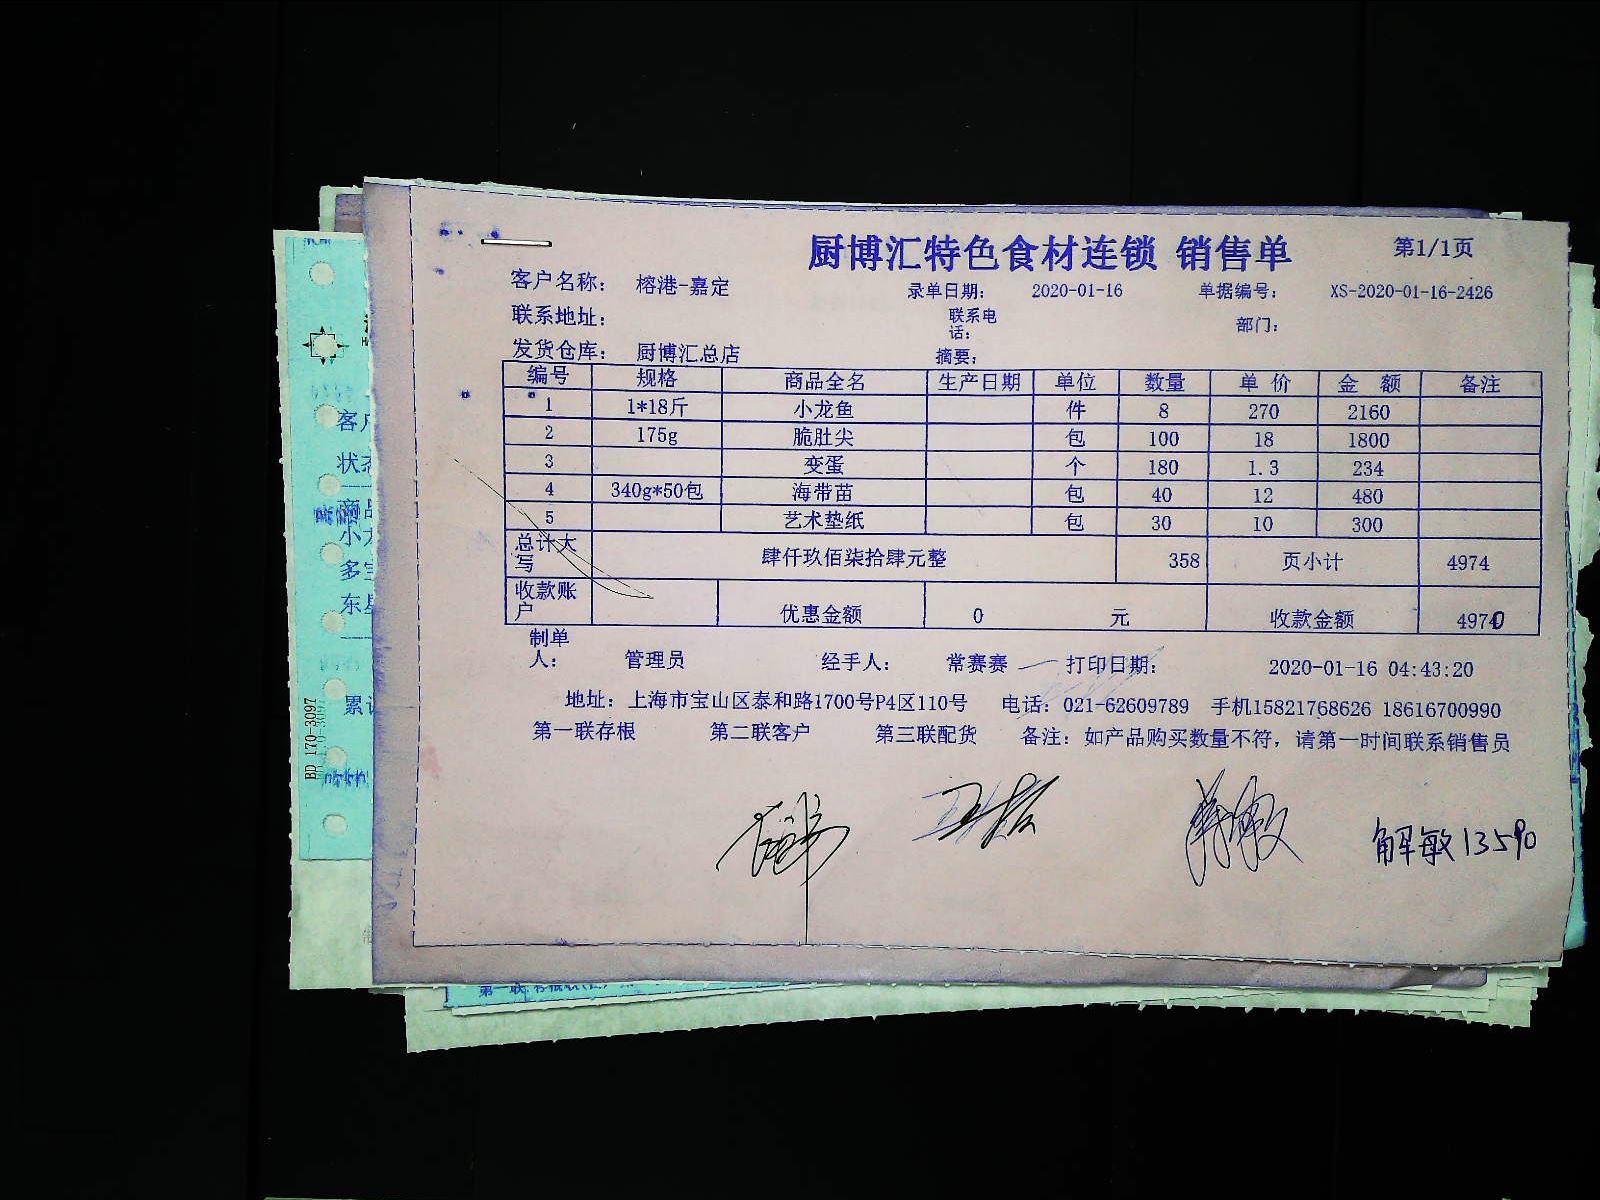 厨博汇特色食材连锁 销售单 第1/1页
客户名称: 榕港-嘉定 录单日期: 2020-01-16 单据编号: XS-2020-01-16-2426
联系地址: 联系电话: 部门:
发货仓库: 厨博汇总店 摘要:
编号 规格 商品全名 生产日期 单位 数量 单 价 金 额 备注
1 1*18斤 小龙鱼 件 8 270 2160
2 175g 脆肚尖 包 100 18 1800
3 变蛋 个 180 1.3 234
4 340g*50包 海带苗 包 40 12 480
5 艺术垫纸 包 30 10 300
总计大写 肆仟玖佰柒拾肆元整 358 页小计 4974
收款账户 优惠金额 0 元 收款金额 4970
制单人: 管理员 经手人: 常赛赛 打印日期: 2020-01-16 04:43:20
地址: 上海市宝山区泰和路1700号P4区110号 电话: 021-62609789 手机15821768626 18616700990
第一联存根 第二联客户 第三联配货 备注: 如产品购买数量不符, 请第一时间联系销售员
解敏13590
客户
状态
商品
小龙
BD 170-3097